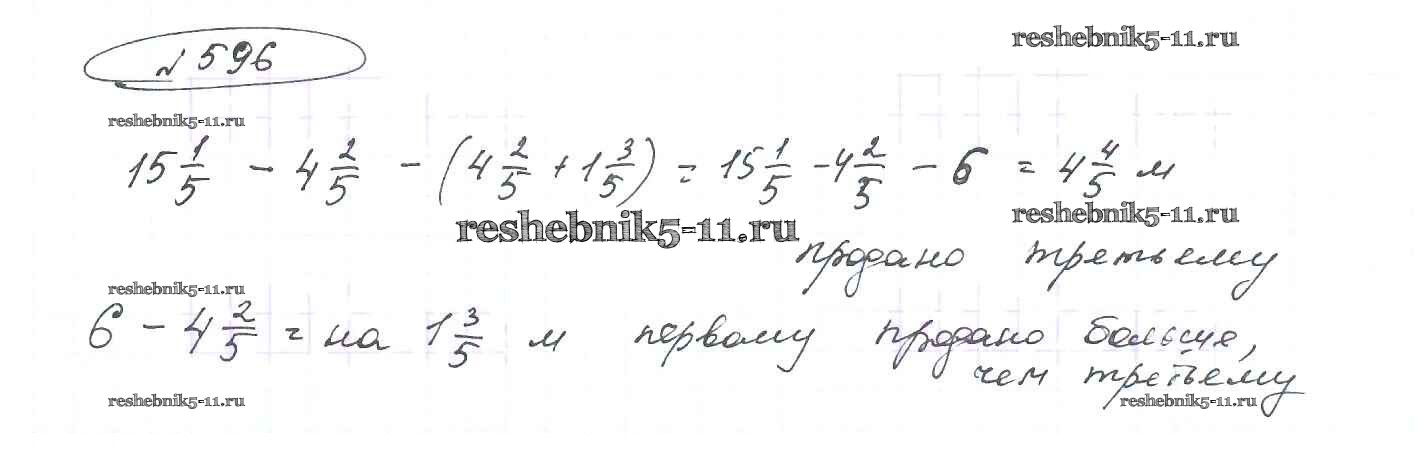 № 596
reshebnik5-11.ru
reshebnik5-11.ru
15 1/5 - 4 2/5 - (4 2/5 + 1 3/5) = 15 1/5 - 4 2/5 - 6 = 4 4/5 м
reshebnik5-11.ru
reshebnik5-11.ru
продано третьему
reshebnik5-11.ru
6 - 4 2/5 = на 1 3/5 м первому продано больше,
чем третьему
reshebnik5-11.ru
reshebnik5-11.ru